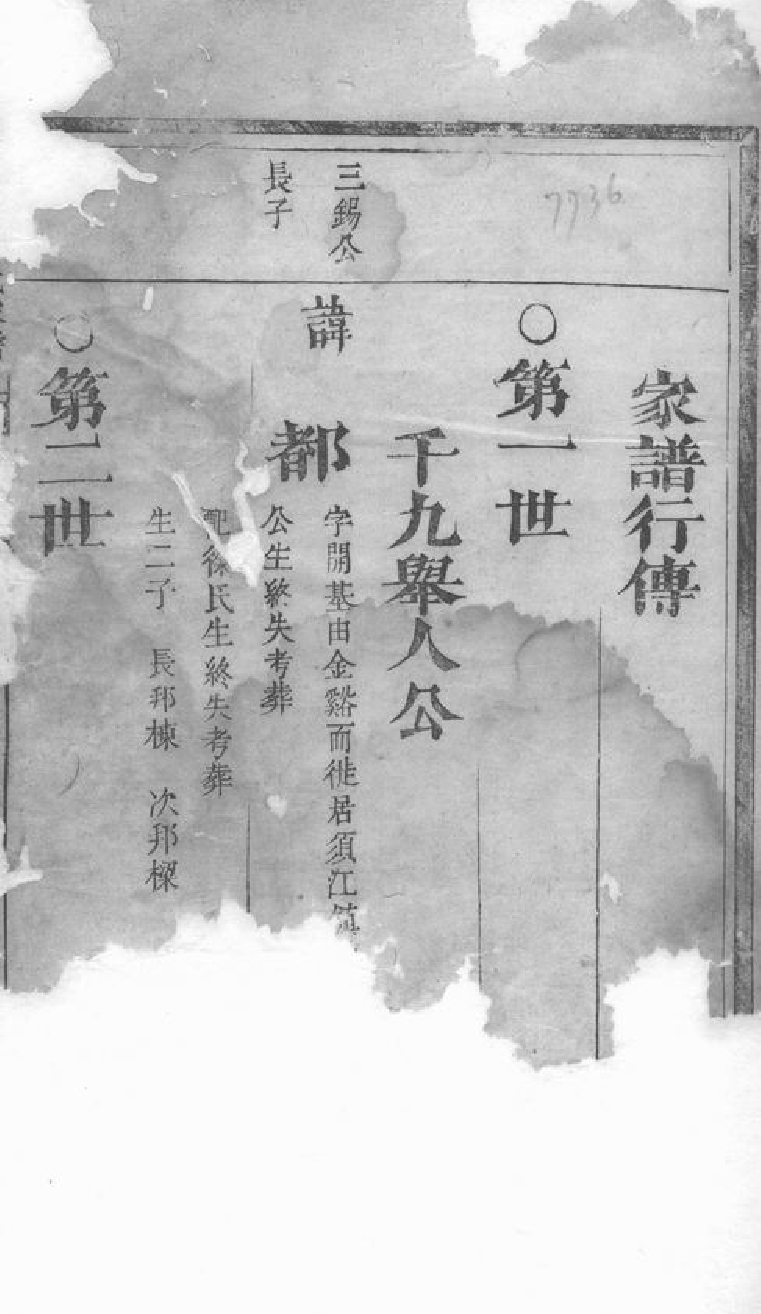 7736
家譜行傳
○第一世
千九舉人公
三錫公
長子
諱
都
字開基由金谿而徙居須江
公生終失考葬
配徐氏生終失考葬
生二子 長邦棟 次邦樑
○第二世